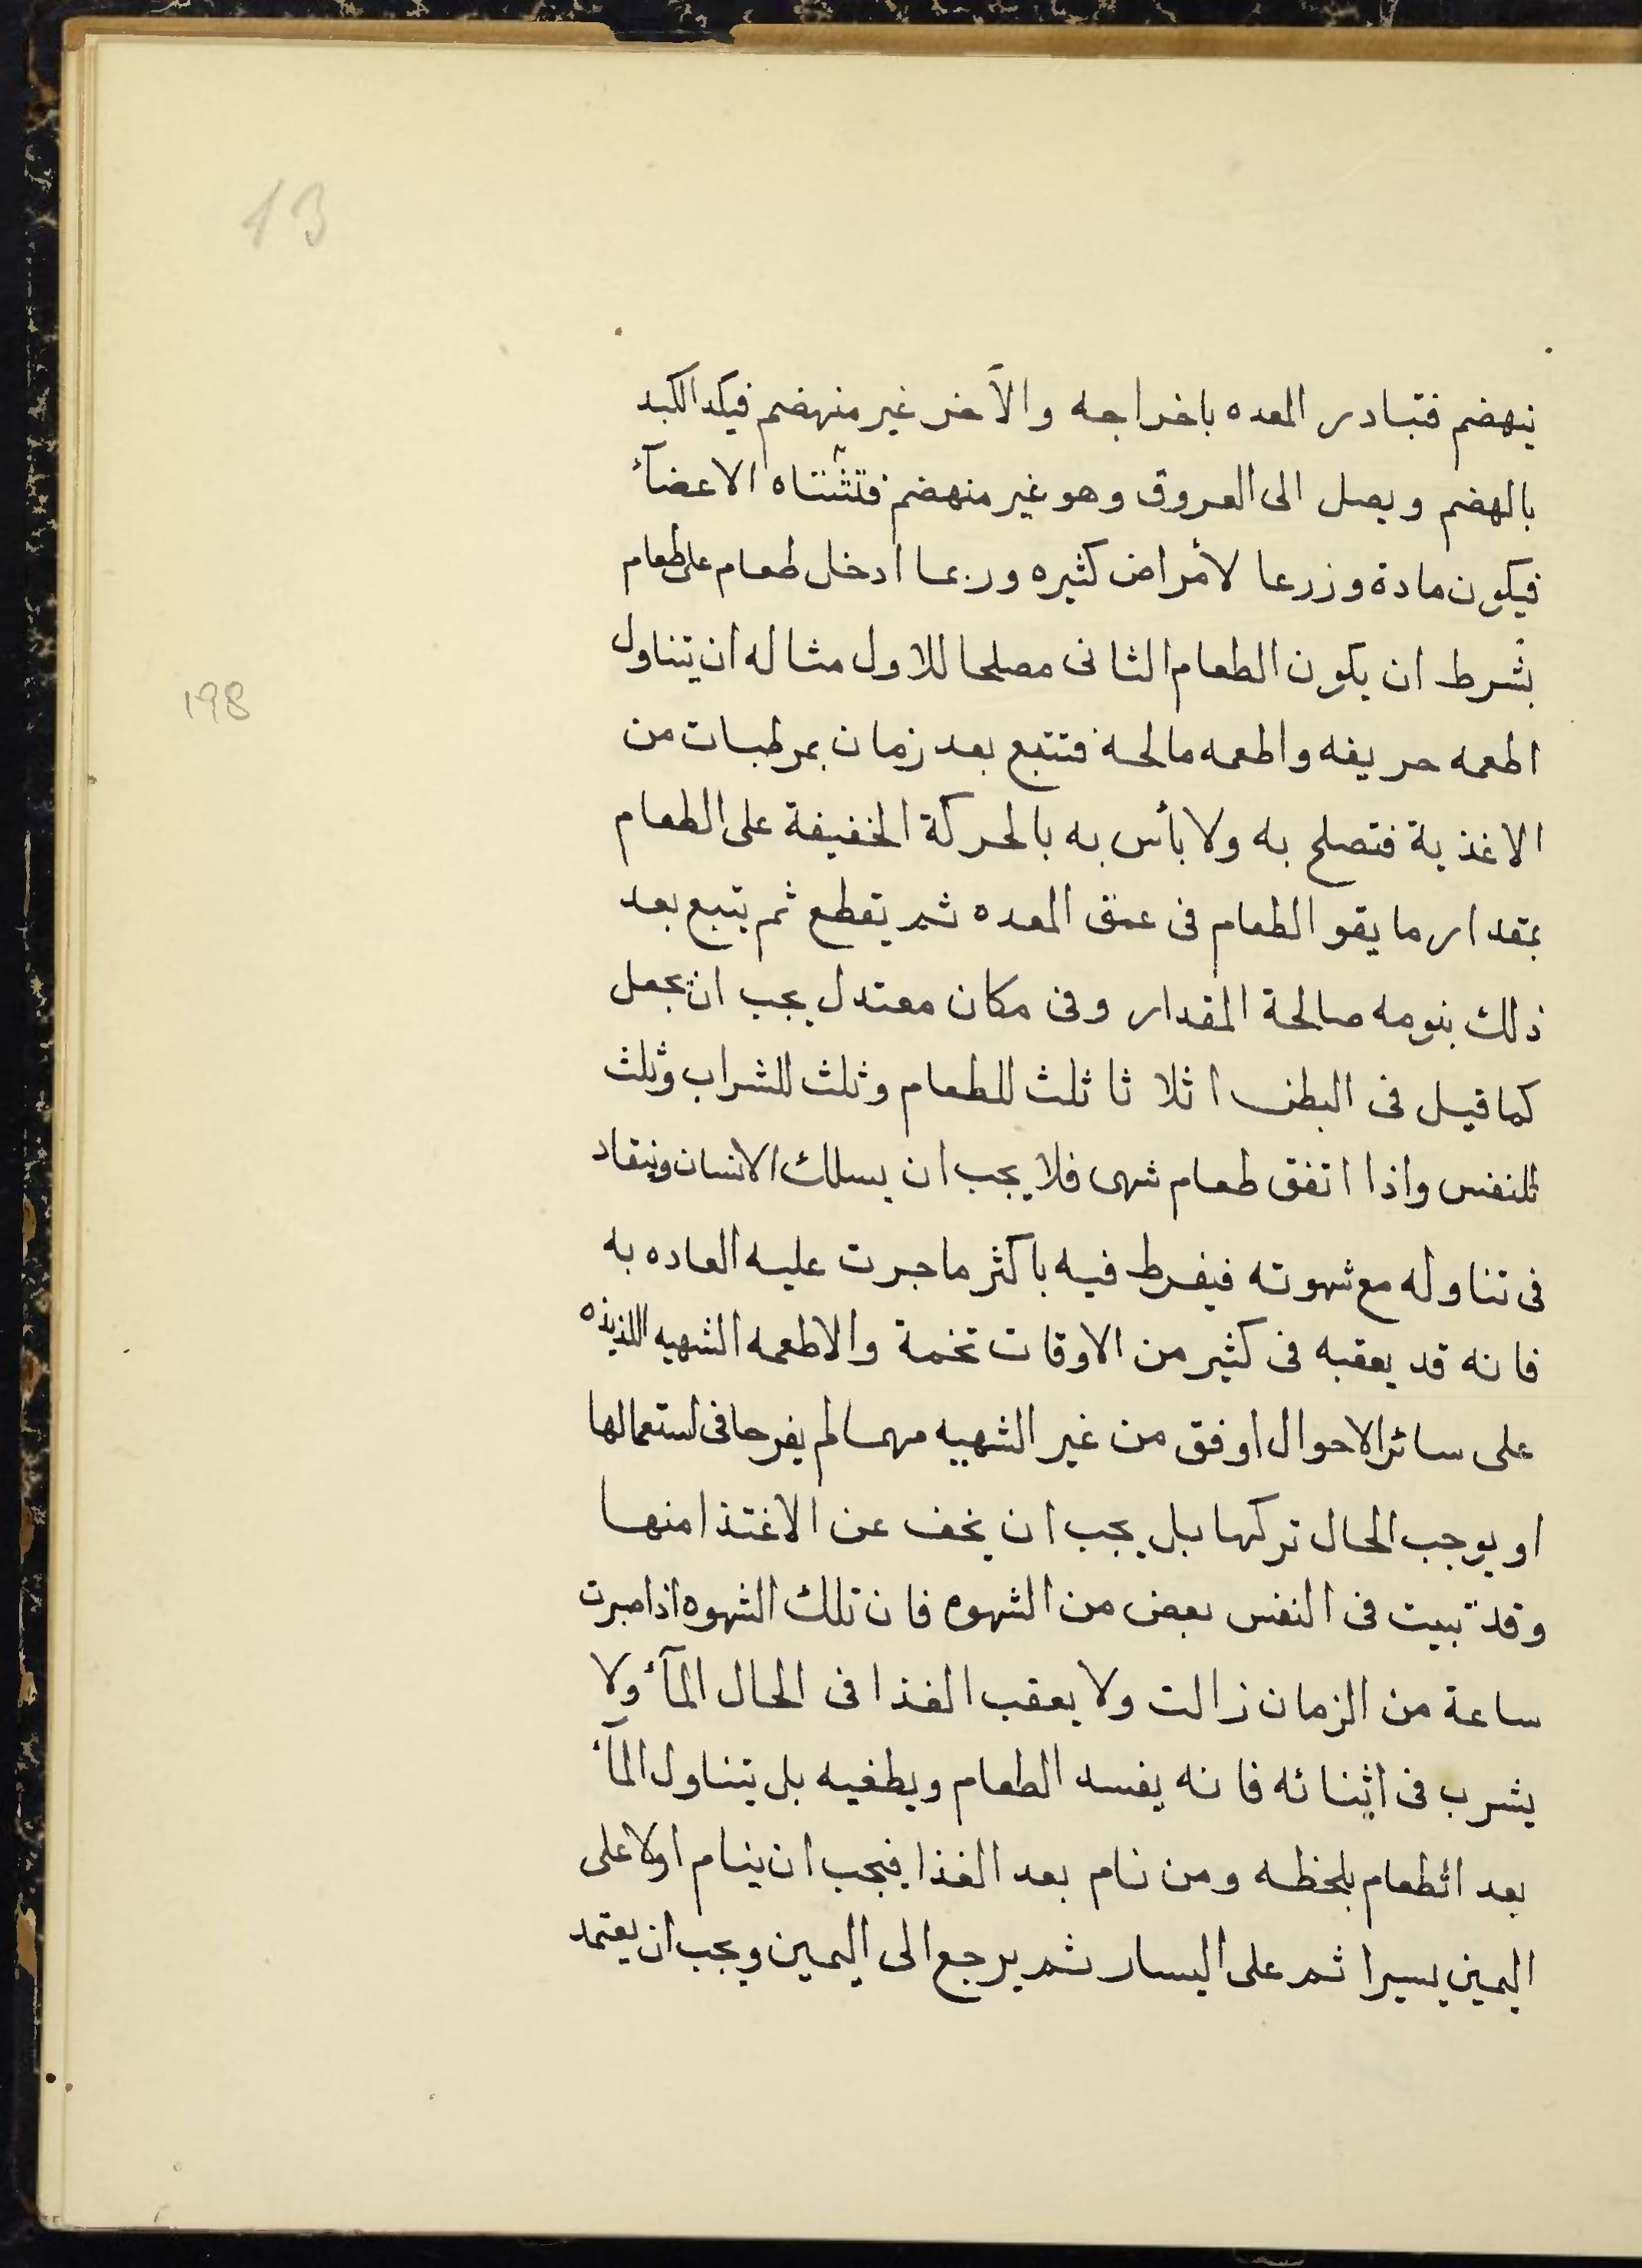 13
ينهضم فتبادر المعده باخراجه والآخر غير منهضم فيكد الكبد
بالهضم ويصل الى العروق وهو غير منهضم الاعضآئ
فيكون مادة وزرعا لأمراض كثيره وربما ادخل طعام على طعام
بشرط ان يكون الطعام الثانى مصلحا للاول مثاله ان يتناول
198
اطعمه حريفه واطعمه مالحة فتتبع بعد زمان بمرطبات من
الاغذية فتصلح به ولا بأس به بالحركة الخفيفة على الطعام
بمقدار ما يقو الطعام فى عمق المعده ثم يقطع ثم يتبع بعد
ذلك بنومه صالحة المقدار وفى مكان معتدل يجب ان يجعل
كما قيل فى البطن اثلاثا ثلث للطعام وثلث للشراب وثلث
للنفس واذا اتفق طعام شهى فلا يجب ان يسلك الانسان وينقاد
فى تناوله مع شهوته فيفرط فيه باكثر ما جرت عليه العاده به
فانه قد يعقبه فى كثير من الاوقات تخمة والاطعمه الشهيه اللذيذه
على سائر الاحوال اوفق من غير الشهيه مهما لم يفرحا فى استعمالها
او يوجب الحال تركها بل يجب ان يخف عن الاغتذا منها
وقد تبيت فى النفس بعض من الشهوه فان تلك الشهوه اذا صبرت
ساعة من الزمان زالت ولا يعقب الغذا فى الحال المآئ ولا
يشرب فى اثنائه فانه يفسد الطعام ويطفيه بل يتناول المآئ
بعد الطعام بلحظه ومن نام بعد الغذا فيجب ان ينام اولا على
اليمين يسيرا ثم على اليسار ثم يرجع الى اليمين ويجب ان يعتمد